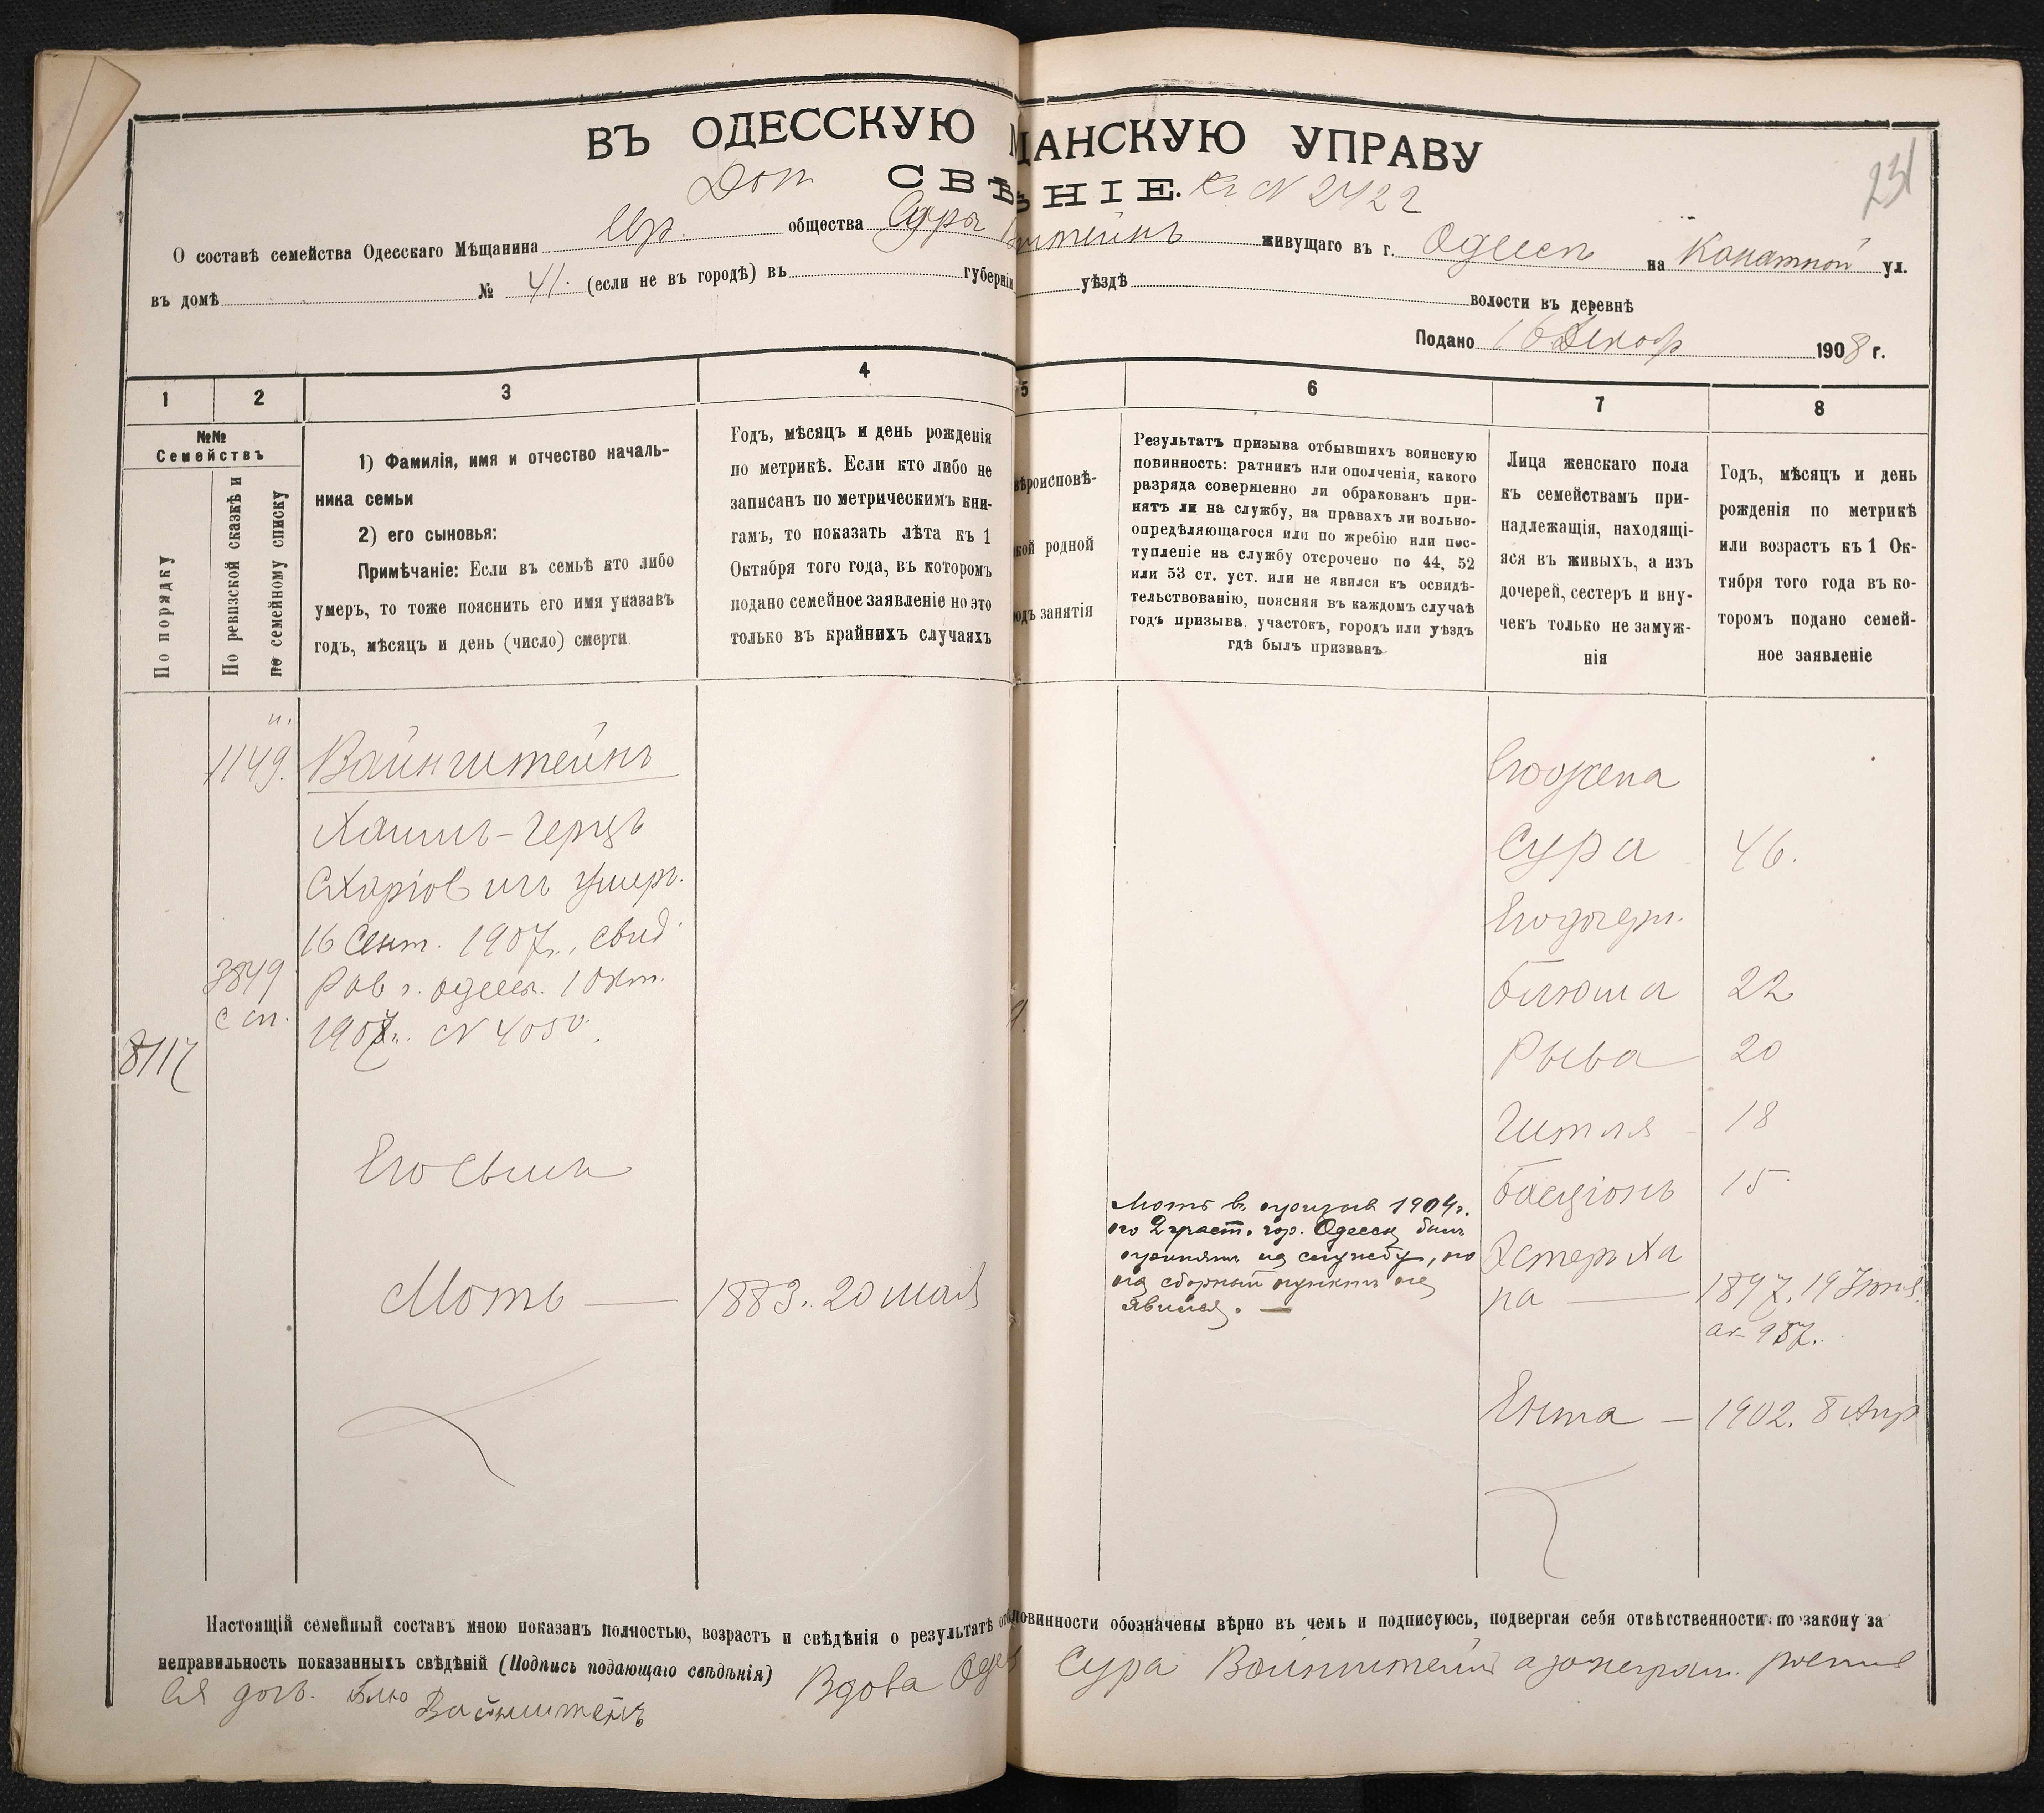 ВЪ ОДЕССКУЮ ЩАНСКУЮ УПРАВУ
Доп. СВѢ НІЕ. К N 2422
231
О составѣ семейства Одесскаго Мѣщанина Евр. общества Сура штейнъ живущаго въ г. Одессѣ на Канатной ул.
въ домѣ № 41. (если не въ городѣ) въ губерніи уѣздѣ волости въ деревнѣ
Подано 16 Декабр 1908 г.
1 2 3 4 5 6 7 8
№№
Семействъ
По порядку
По ревизской сказкѣ и
по семейному списку
1) Фамилія, имя и отчество началь-
ника семьи
2) его сыновья:
Примѣчаніе: Если въ семьѣ кто либо
умеръ, то тоже пояснить его имя указавъ
годъ, мѣсяцъ и день (число) смерти
Годъ, мѣсяцъ и день рожденія
по метрикѣ. Если кто либо не
записанъ по метрическимъ кни-
гамъ, то показать лѣта къ 1
Октября того года, въ которомъ
подано семейное заявленіе но это
только въ крайнихъ случаяхъ
вѣроисповѣ-
кой родной
одъ занятія
Результатъ призыва отбывшихъ воинскую
повинность: ратникъ или ополченія, какого
разряда совершенно ли обракованъ при-
нятъ ли на службу, на правахъ ли вольно-
опредѣляющагося или по жребію или пос-
тупленіе на службу отсрочено по 44, 52
или 53 ст. уст. или не явился къ освидѣ-
тельствованію, поясняя въ каждомъ случаѣ
годъ призыва, участокъ, городъ или уѣздъ
гдѣ былъ призванъ
Лица женскаго пола
къ семействамъ при-
надлежащія, находящі-
яся въ живыхъ, а изъ
дочерей, сестеръ и вну-
чекъ только не замуж-
нія
Годъ, мѣсяцъ и день
рожденія по метрикѣ
или возрастъ къ 1 Ок-
тября того года въ ко-
торомъ подано семей-
ное заявленіе
8117
н.
1149.
3849
с сп.
Вайнштейнъ
Хаимъ-Герцъ
Схаріовичъ умеръ.
16 Сент. 1907г., свид.
Рав г. Одессы. 1 Окт.
1907г. N 4050.
Его Сынъ
Моть — 1883. 20 мая
Моть въ призывѣ 1904г.
по 2 участ. гор. Одессы былъ
принятъ на службу, но
на сборный пунктъ не
явился. —
Его жена
Сура 46.
Его дочери.
Блюма 22
Рыва 20
Гитля 18
Басціонъ 15
Эстеръ Ха
на — 1897. 19 Іюня
ак 987.
Ента — 1902. 8 Апр
Настоящій семейный составъ мною показанъ полностью, возрастъ и свѣдѣнія о результатѣ от повинности обозначены вѣрно въ чемъ и подписуюсь, подвергая себя отвѣтственности по закону за
неправильность показанныхъ свѣдѣній (Подпись подающаго свѣдѣнія) Вдова Сура Вайнштейнъ а за неграм.
ея дочь. Блю Вайнштейнъ